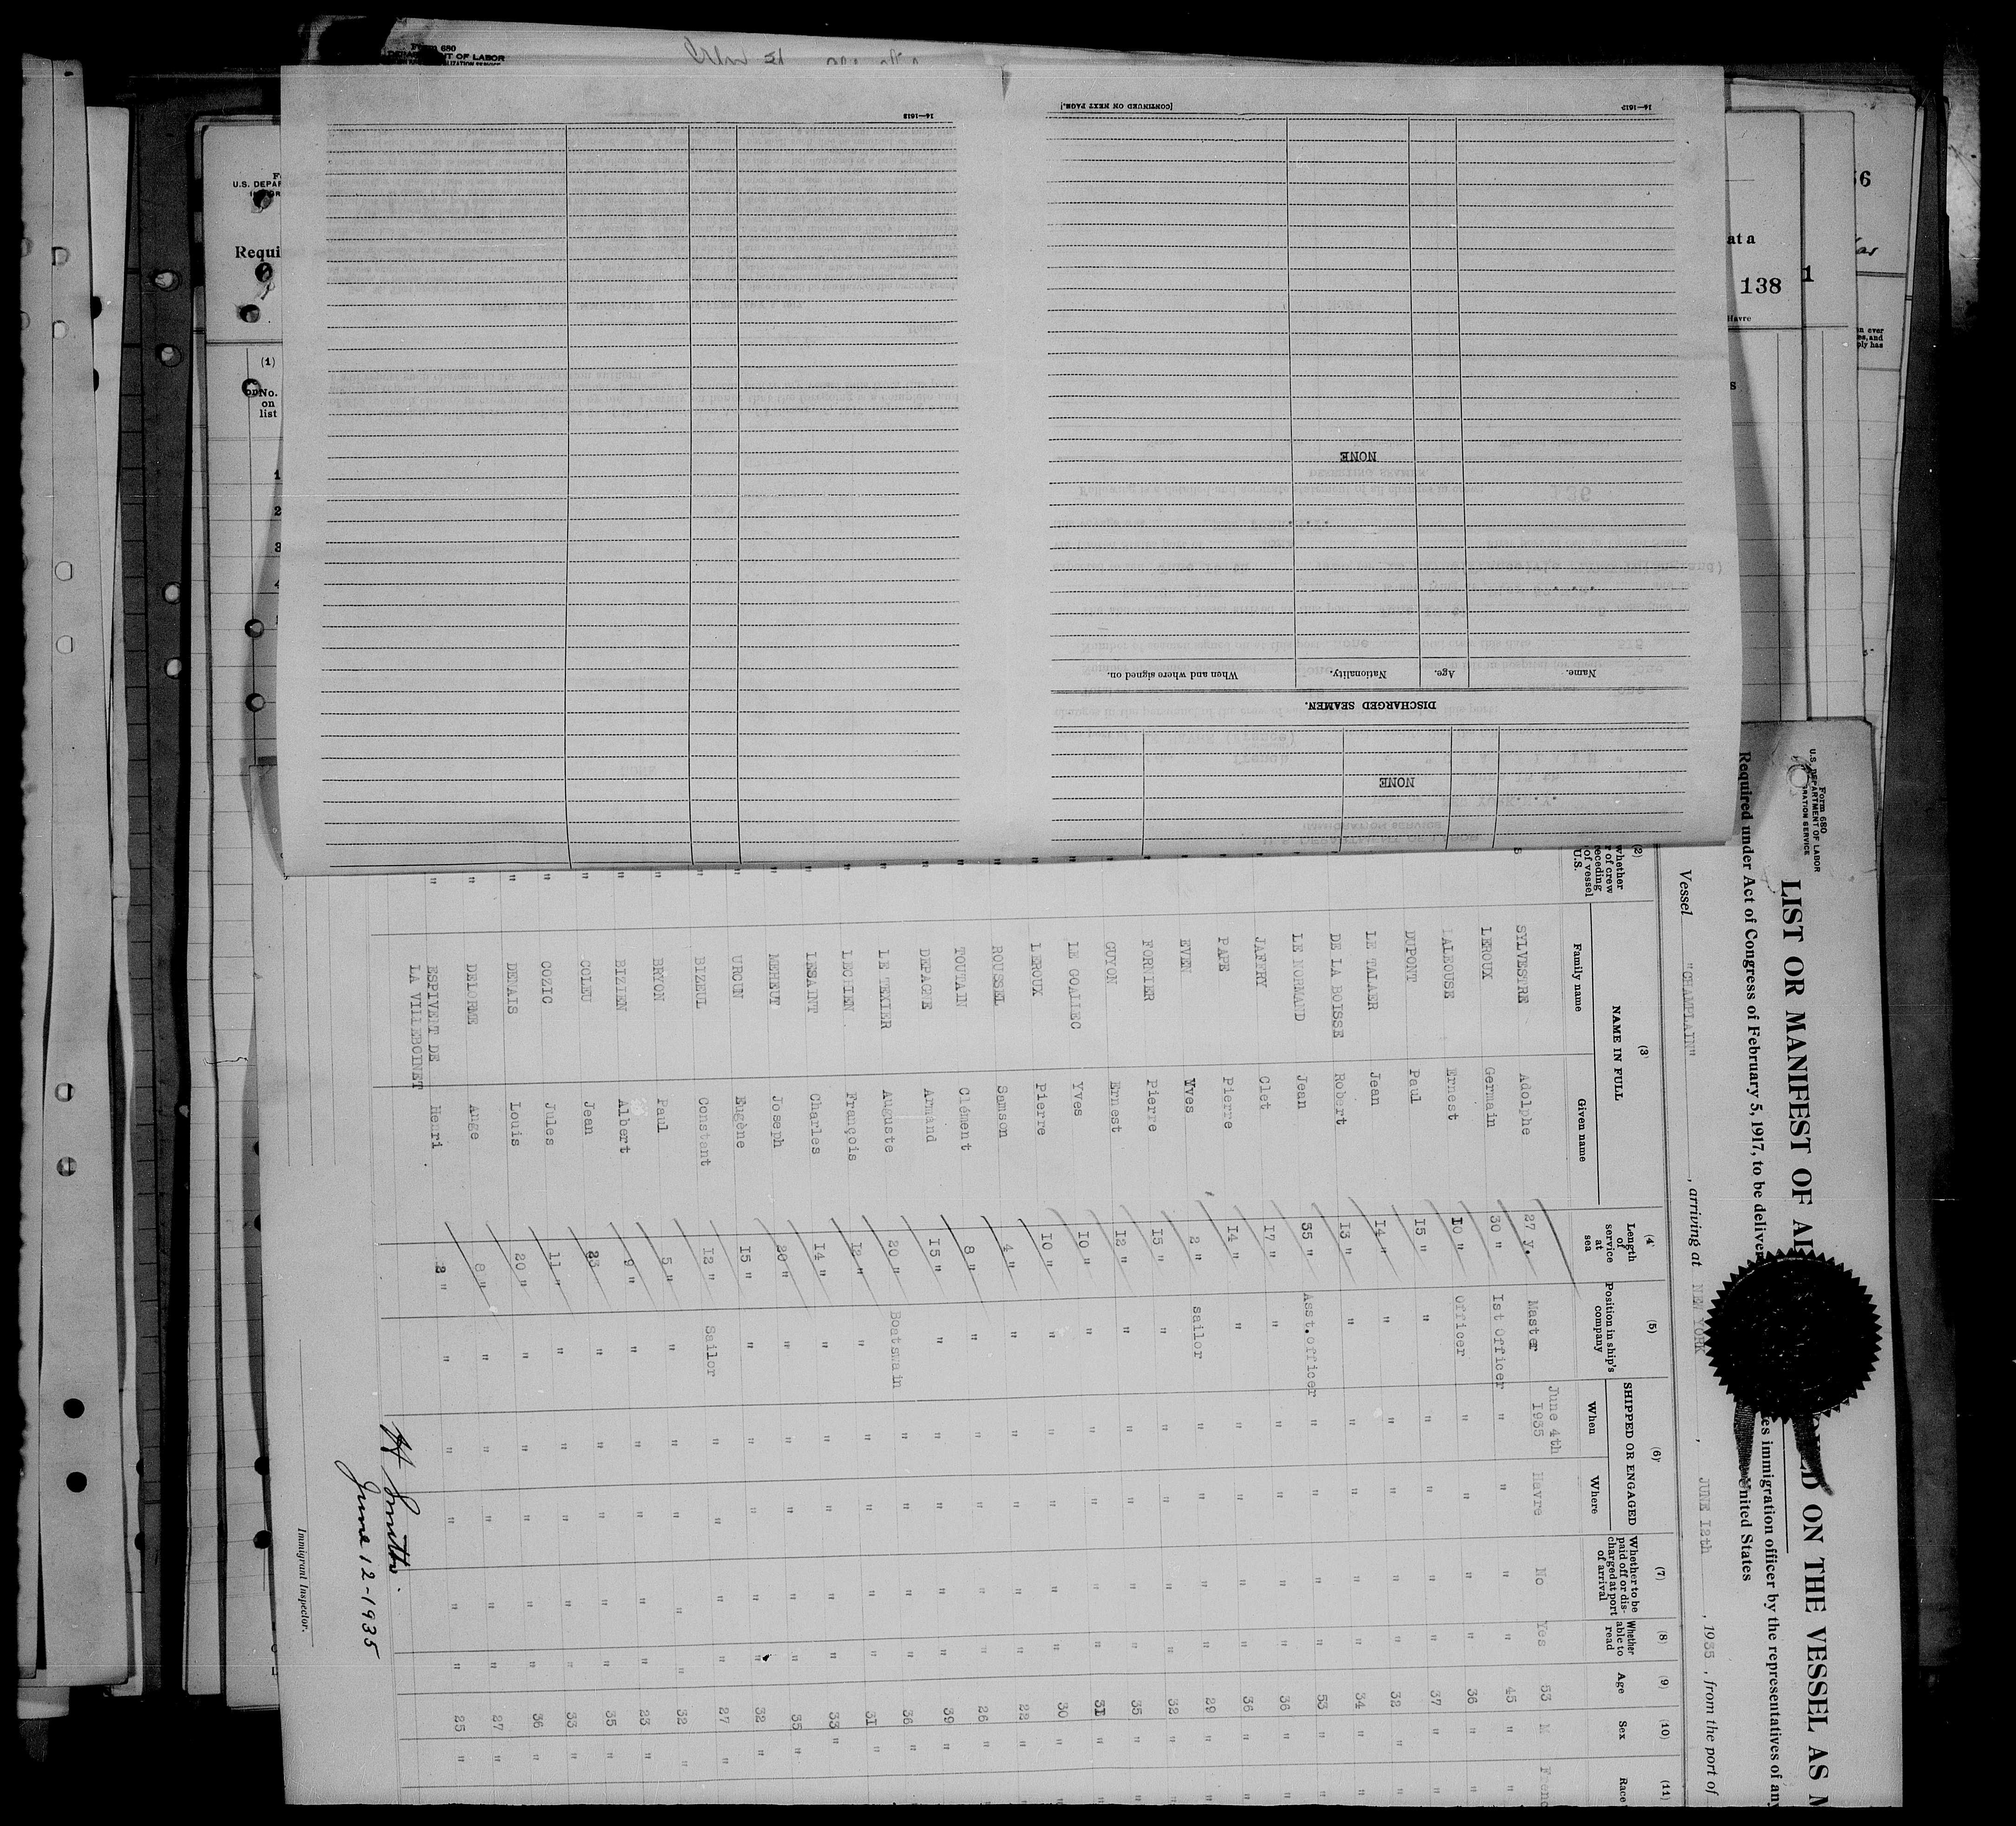 Form 680
U.S. DEPARTMENT OF LABOR
IMMIGRATION SERVICE
LIST OR MANIFEST OF ON THE VESSEL AS
Required under Act of Congress of February 5, 1917, to be deliver es immigration officer by the representatives of any
United States
Vessel "CHAMPLAIN", arriving at NEW YORK, JUNE I2th, 1935, from the port of
(2) (3) (4) (5) (6) (7) (8) (9) (10) (11)
NAME IN FULL
Family name Given name
Length of service at sea
Position in ship's company
SHIPPED OR ENGAGED
When Where
Whether to be paid off or discharged at port of arrival
Whether able to read
Age Sex Race
SYLVESTRE Adolphe 27 y. Master June 4th I935 Havre No Yes 53 M
LEROUX Germain 30 " Ist Officer " " " " 45 "
LALEOUSE Ernest IO " Officer " " " " 36 "
DUPONT Paul I5 " " " " " " 37 "
LE TALAER Jean I4 " " " " " " 32 "
DE LA BOISSE Robert I3 " " " " " " 34 "
LE NORMAND Jean 35 " Asst.Officer " " " " 53 "
JAFFRY Clet I7 " " " " " " 36 "
PAPE Pierre I4 " " " " " " 36 "
EVEN Yves 2 " sailor " " " " 29 "
FORNIER Pierre I5 " " " " " " 32 "
GUYON Ernest I2 " " " " " " 35 "
LE GOALLEC Yves IO " " " " " " 3I "
LEROUX Pierre IO " " " " " " 30 "
ROUSSEL Samson 4 " " " " " " 22 "
TOUTAIN Clément 8 " " " " " " 26 "
DEPAGNE Armand I5 " " " " " " 39 "
LE TEXIER Auguste 20 " Boatswain " " " " 36 "
LECHIEN François I2 " " " " " " 3I "
LESAINT Charles I4 " " " " " " 33 "
MEHEUT Joseph 20 " " " " " " 35 "
URCUN Eugène I5 " " " " " " 32 "
BIZEUL Constant I2 " Sailor " " " " 27 "
BRYON Paul 5 " " " " " " 32 "
BIZIEN Albert 9 " " " " " " 23 "
COLEU Jean 23 " " " " " 35 "
COZIC Jules 11 " " " " " " 33 "
DENAIS Louis 20 " " " " " " 36 "
DELORME Ange 8 " " " " " " 27 "
ESPIVENT DE
LA VILLEBOINET Henri 2 " " " " " " 25 "
H Smith.
June 12-1935
Immigrant Inspector.
NONE
DISCHARGED SEAMEN.
Name. Age. Nationality. When and where signed on.
NONE
14—1612
[CONTINUED ON NEXT PAGE.]
14—1613
Form 680
OF LABOR
U.S. DEPAR
Requi
(1)
No.
on
list
1
2
3
4
at a
138
Havre
1